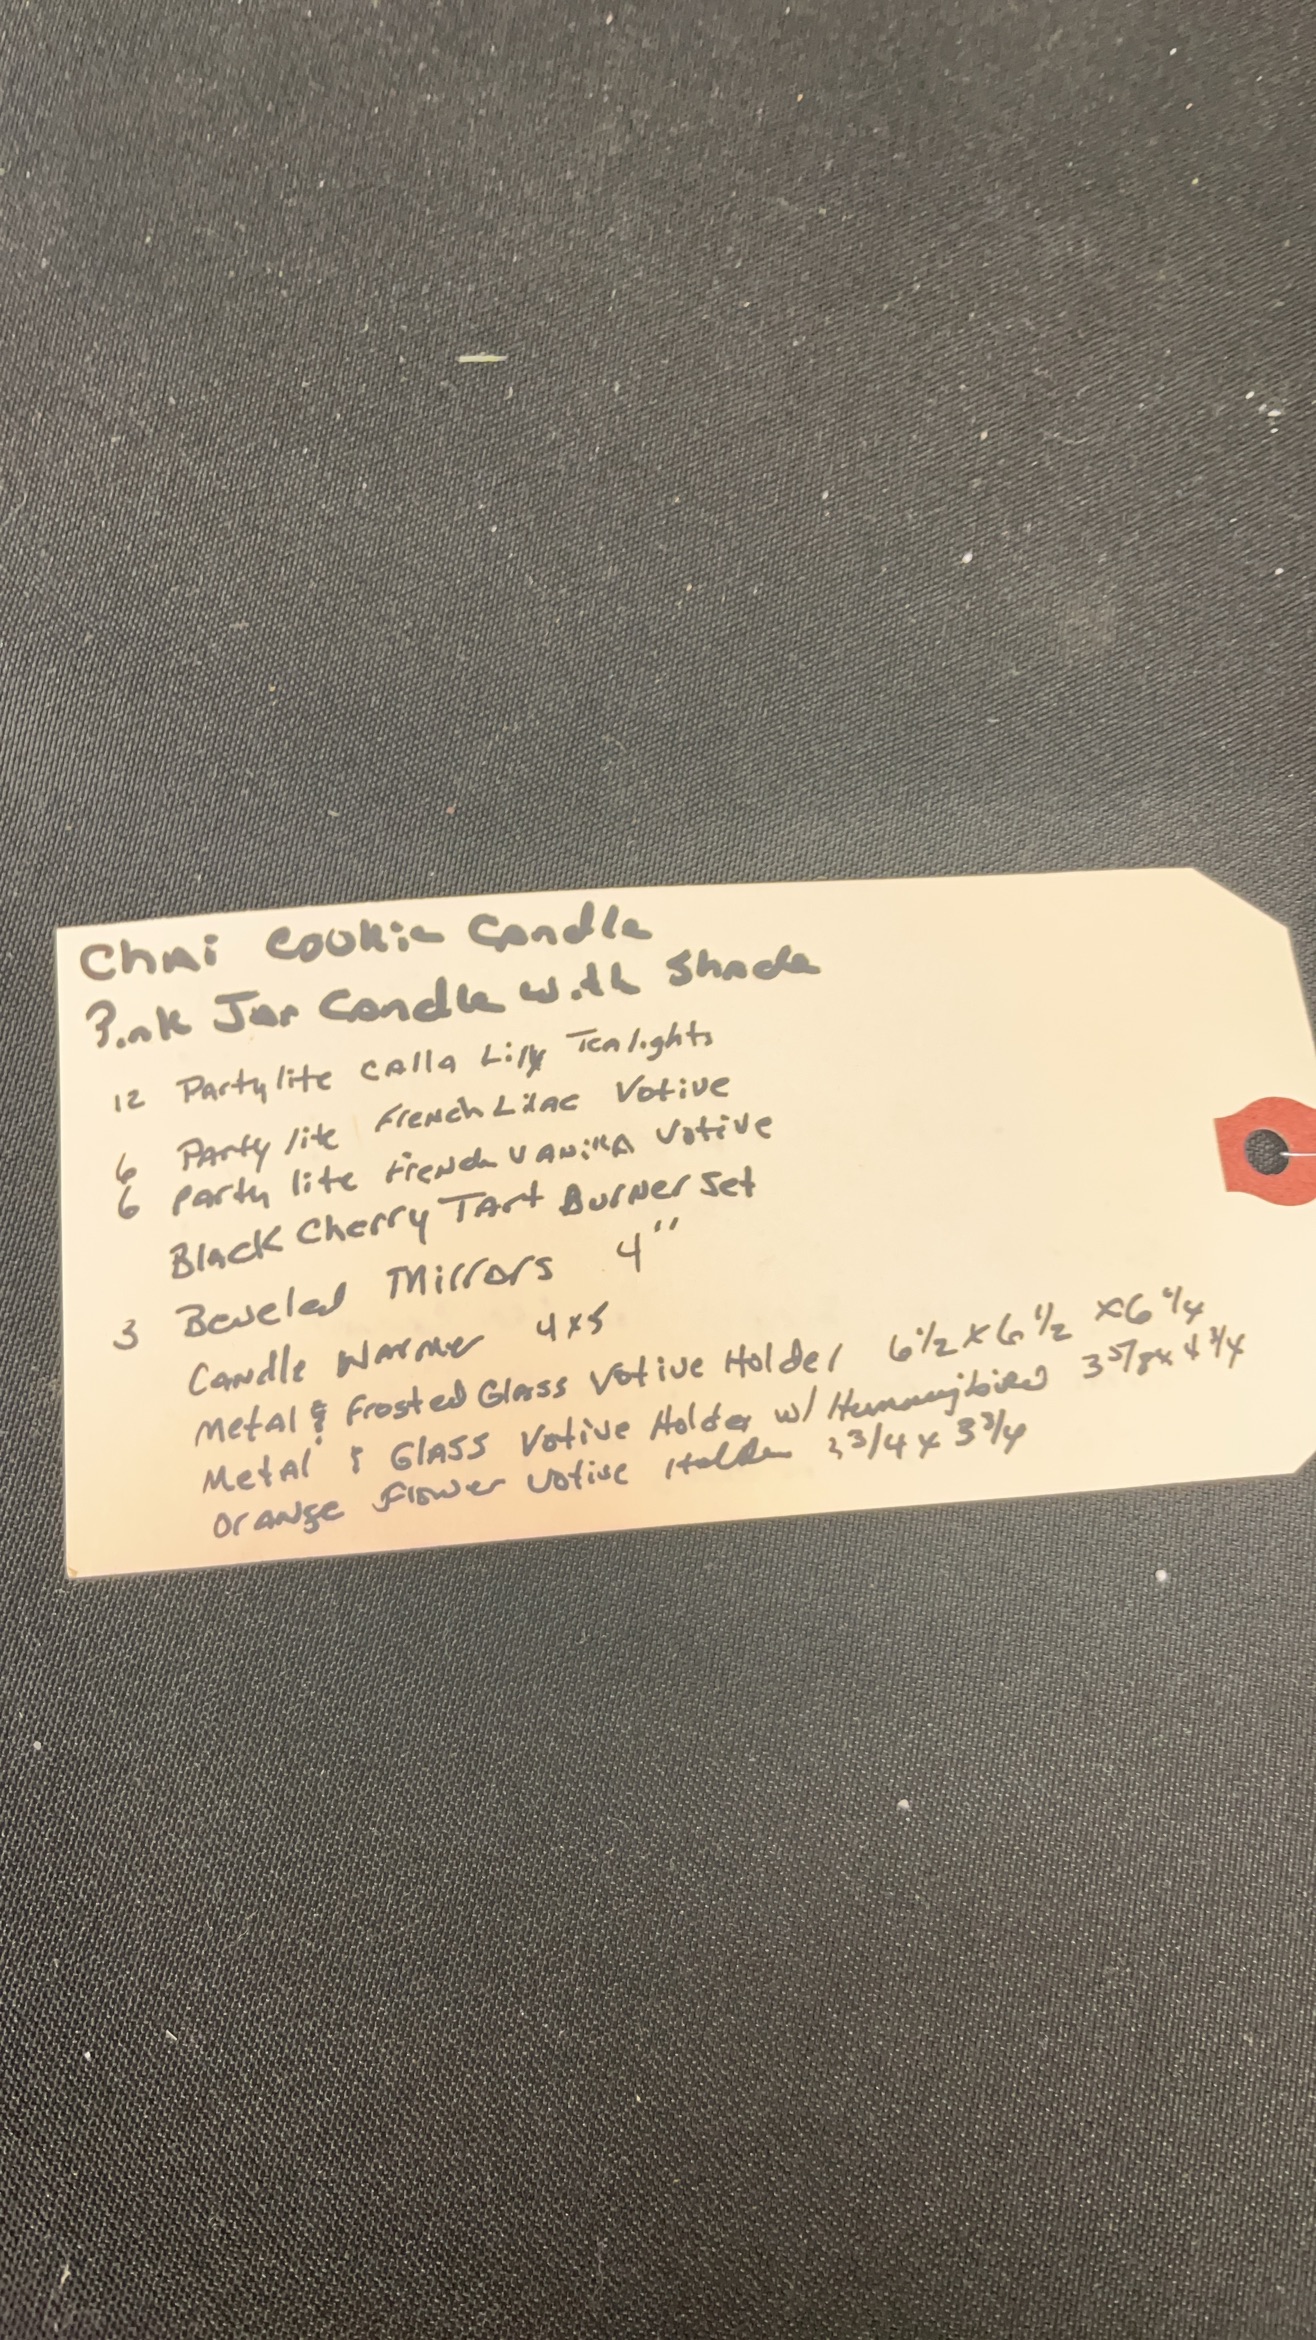 Chai Cookie Candle
Pink Jar Candle with Shade
12 Partylite Calla Lily Tealights
6 Partylite French Lilac Votive
6 Partylite French Vanilla Votive
Black Cherry Tart Burner Set
3 Beveled Mirrors 4"
Candle Warmer 4x5
Metal & Frosted Glass Votive Holder 6 1/2 x 6 1/2 x 6 1/4
Metal & Glass Votive Holder w/ Hummingbird 3 5/8 x 4 3/4
Orange Flower Votive Holder 3 3/4 x 3 3/4